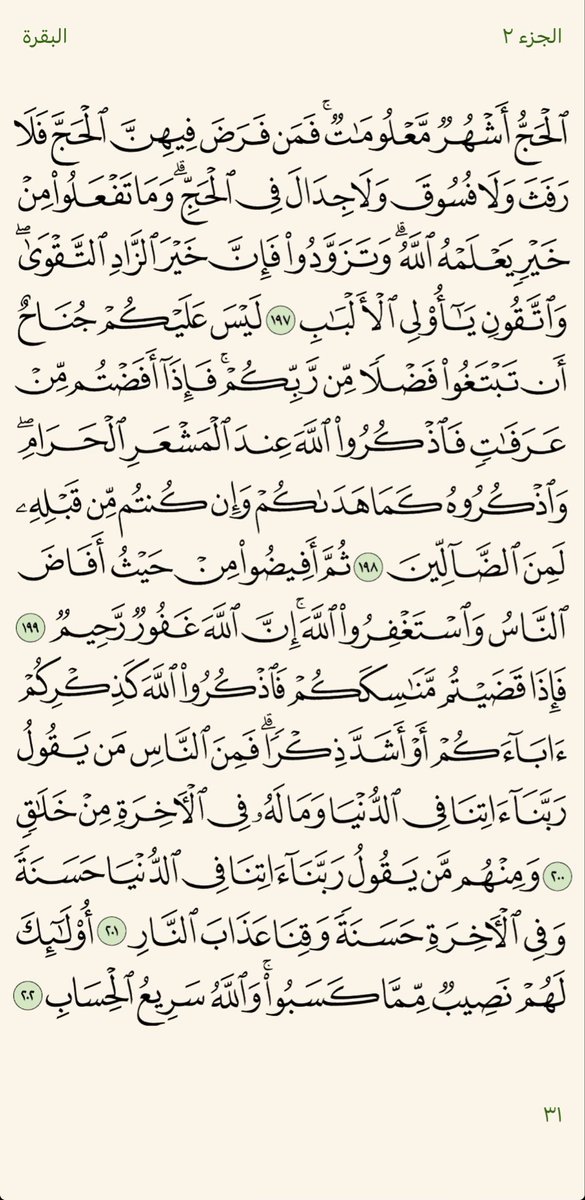 الجزء ٢
البقرة
ٱلْحَجُّ أَشْهُرٌ مَّعْلُومَٰتٌ ۚ فَمَن فَرَضَ فِيهِنَّ ٱلْحَجَّ فَلَا
رَفَثَ وَلَا فُسُوقَ وَلَا جِدَالَ فِى ٱلْحَجِّ ۗ وَمَا تَفْعَلُوا۟ مِنْ
خَيْرٍ يَعْلَمْهُ ٱللَّهُ ۗ وَتَزَوَّدُوا۟ فَإِنَّ خَيْرَ ٱلزَّادِ ٱلتَّقْوَىٰ ۖ
وَٱتَّقُونِ يَٰٓأُو۟لِى ٱلْأَلْبَٰبِ ١٩٧ لَيْسَ عَلَيْكُمْ جُنَاحٌ
أَن تَبْتَغُوا۟ فَضْلًا مِّن رَّبِّكُمْ ۚ فَإِذَآ أَفَضْتُم مِّنْ
عَرَفَٰتٍ فَٱذْكُرُوا۟ ٱللَّهَ عِندَ ٱلْمَشْعَرِ ٱلْحَرَامِ ۖ
وَٱذْكُرُوهُ كَمَا هَدَىٰكُمْ وَإِن كُنتُم مِّن قَبْلِهِۦ
لَمِنَ ٱلضَّآلِّينَ ١٩٨ ثُمَّ أَفِيضُوا۟ مِنْ حَيْثُ أَفَاضَ
ٱلنَّاسُ وَٱسْتَغْفِرُوا۟ ٱللَّهَ ۚ إِنَّ ٱللَّهَ غَفُورٌ رَّحِيمٌ ١٩٩
فَإِذَا قَضَيْتُم مَّنَٰسِكَكُمْ فَٱذْكُرُوا۟ ٱللَّهَ كَذِكْرِكُمْ
ءَابَآءَكُمْ أَوْ أَشَدَّ ذِكْرًا ۗ فَمِنَ ٱلنَّاسِ مَن يَقُولُ
رَبَّنَآ ءَاتِنَا فِى ٱلدُّنْيَا وَمَا لَهُۥ فِى ٱلْءَاخِرَةِ مِنْ خَلَٰقٍ
٢٠٠ وَمِنْهُم مَّن يَقُولُ رَبَّنَآ ءَاتِنَا فِى ٱلدُّنْيَا حَسَنَةً
وَفِى ٱلْءَاخِرَةِ حَسَنَةً وَقِنَا عَذَابَ ٱلنَّارِ ٢٠١ أُو۟لَٰٓئِكَ
لَهُمْ نَصِيبٌ مِّمَّا كَسَبُوا۟ ۚ وَٱللَّهُ سَرِيعُ ٱلْحِسَابِ ٢٠٢
٣١